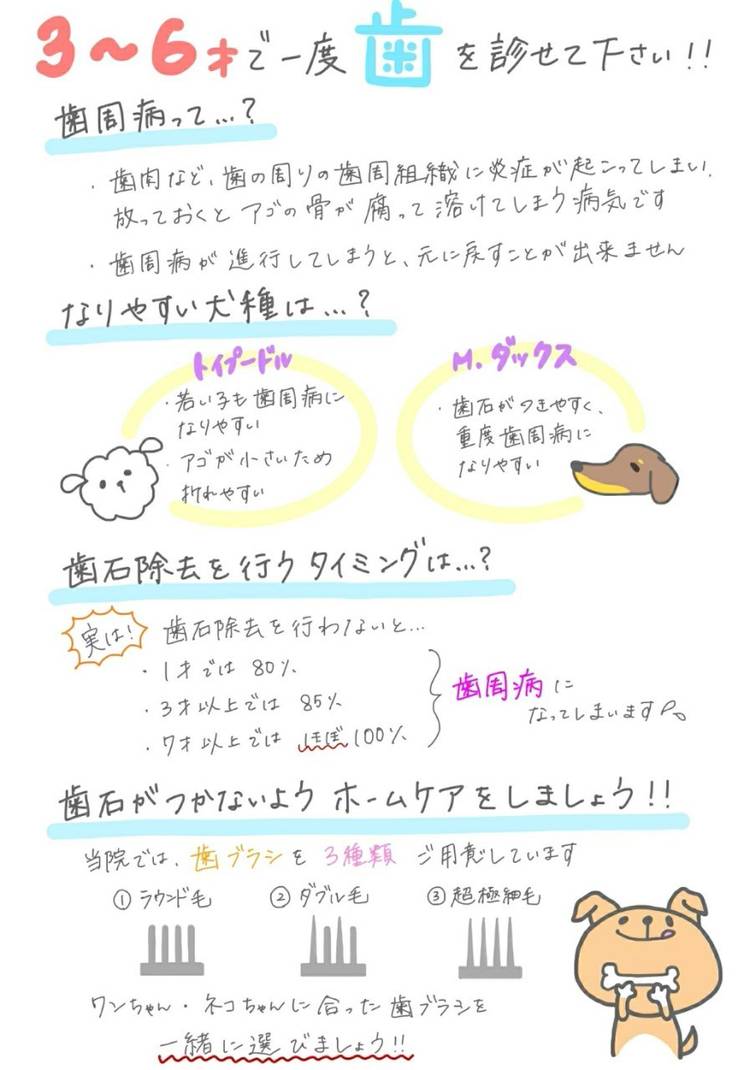 3～6才で一度歯を診せて下さい!!
歯周病って…?
・歯肉など、歯の周りの歯周組織に炎症が起こってしまい、
放っておくとアゴの骨が腐って溶けてしまう病気です
・歯周病が進行してしまうと、元に戻すことが出来ません
なりやすい犬種は…?
トイプードル
・若い子も歯周病に
なりやすい
・アゴが小さいため
折れやすい
M.ダックス
・歯石がつきやすく、
重度歯周病に
なりやすい
歯石除去を行うタイミングは…?
実は!
歯石除去を行わないと…
・1才では 80%
・3才以上では 85%
・7才以上では ほぼ100%
歯周病に
なってしまいます
歯石がつかないようホームケアをしましょう!!
当院では、歯ブラシを3種類ご用意しています
①ラウンド毛
②ダブル毛
③超極細毛
ワンちゃん・ネコちゃんに合った歯ブラシを
一緒に選びましょう!!